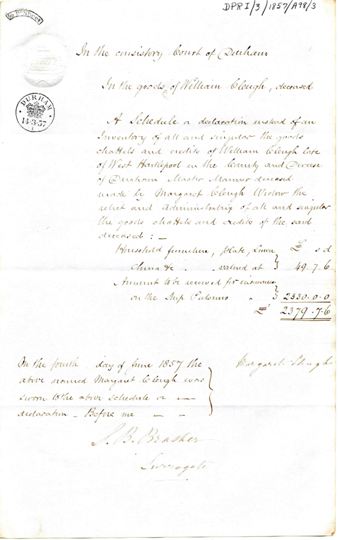 DPRI/3/1857/A98/3
DURHAM
In the consistory Court of Durham
In the goods of William Clough, deceased
A Schedule or declaration instead of an
Inventory of all and singular the goods
chattels and credits of William Clough late
of West Hartlepool in the County and Diocese
of Durham Master Mariner deceased
made by Margaret Clough Widow the
relict and Administratrix of all and singular
the goods chattels and credits of the said
deceased : —
Household furniture, plate, Linen £ s d
China &c . valued at } 49 . 7 . 6
Amount to be received for insurance
on the Ship } 2330 . 0 . 0
£ 2379 . 7 . 6
In the fourth day of June 1857 the
above named Margaret Clough was
sworn to the above schedule or
declaration — Before me
Margaret Clough
J. B. Brasher
Surrogate